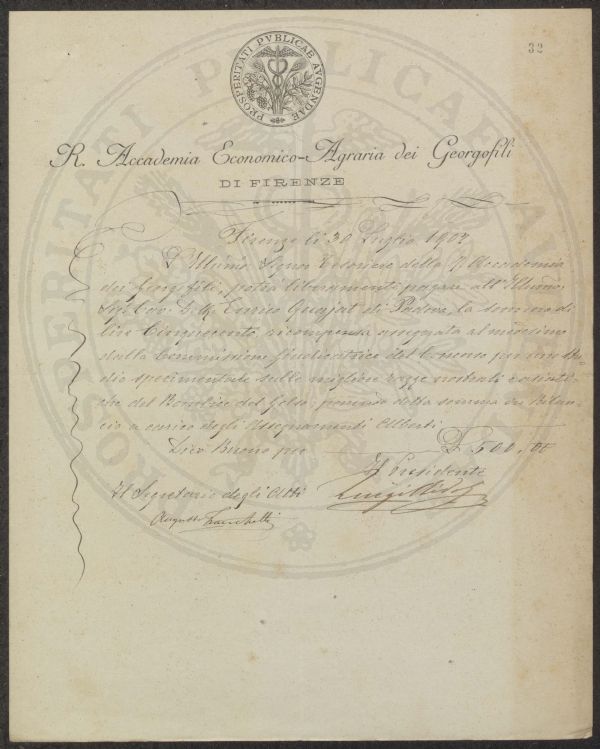 32
PROSPERITATI PVBLICAE AVGENDAE
R. Accademia Economico-Agraria dei Georgofili
DI FIRENZE
Firenze lì 30 Luglio 1903
L'Illmo Signor Tesoriere della R. Accademia
dei Georgofili, potrà liberamente pagare all'Illmo
Sig. Cav. Enrico Quajat di Padova, la somma di
lire Cinquecento ricompensa assegnata al medesimo
dalla Commissione giudicatrice del Concorso per uno Stu-
dio sperimentale sulle migliori razze nostrali e asiati-
che del Bombice del Gelso; ponendo detta somma in Bilan-
cio a carico degli Assegnamenti Alberti.
Dico Buono per £ 500,00
Il Presidente
Il Segretario degli Atti
Luigi Ridolfi
Augusto Franchetti